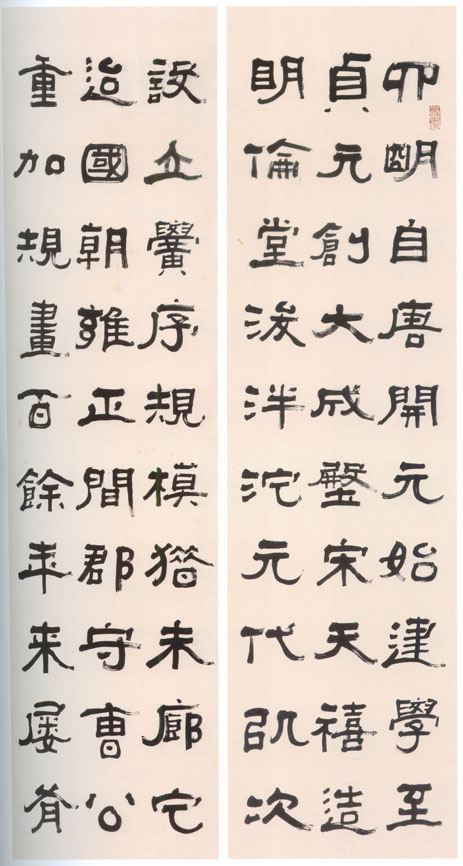 四明自唐開元始建學至
貞元創大成壂宋天禧造
明倫堂浚泮池元代以次
設立黌序規模猶未廓它
迨國朝雍正間郡守曹公
重加規畫百餘年来屢有